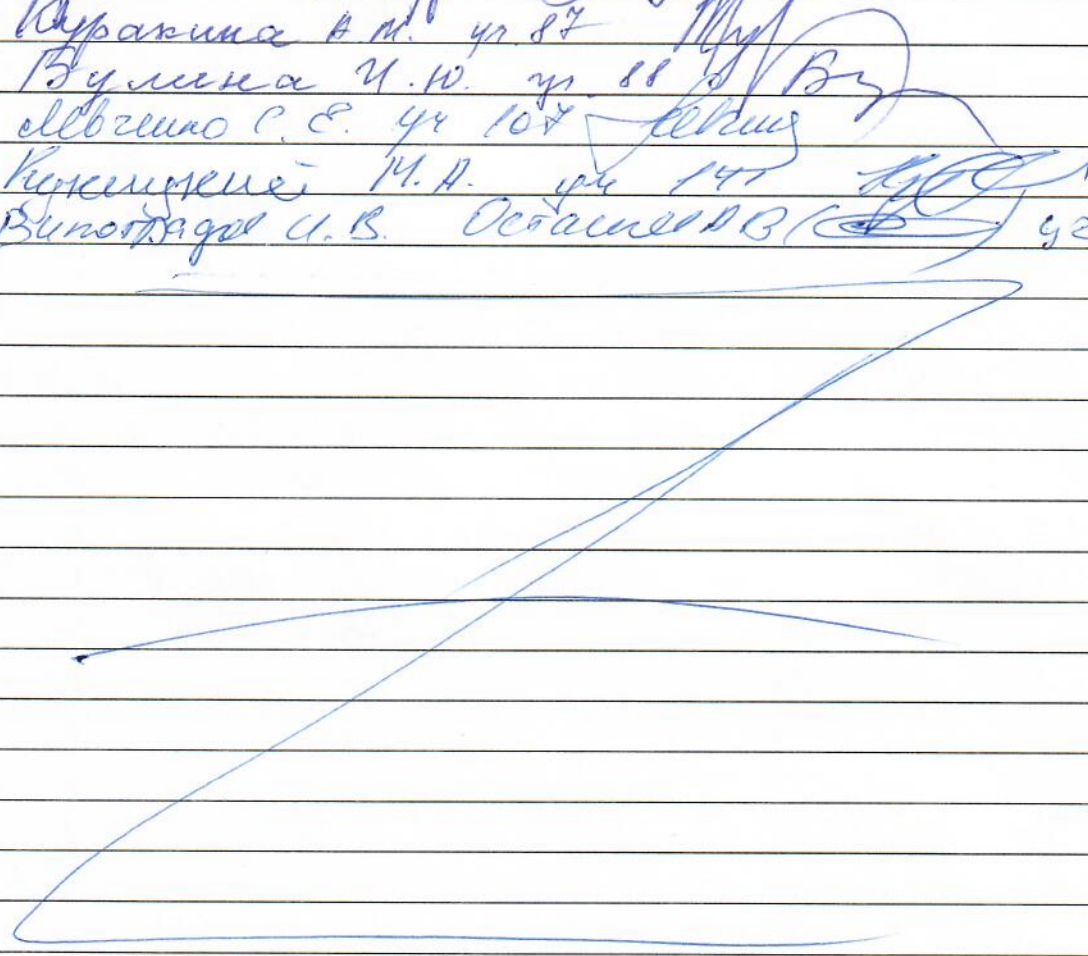 Куракина А.М. уч. 87
Булина И.Ю. уч. 88
Левченко С.Е. уч 107
М.А. уч 141
Виноградов И.В. Осташев А В уч